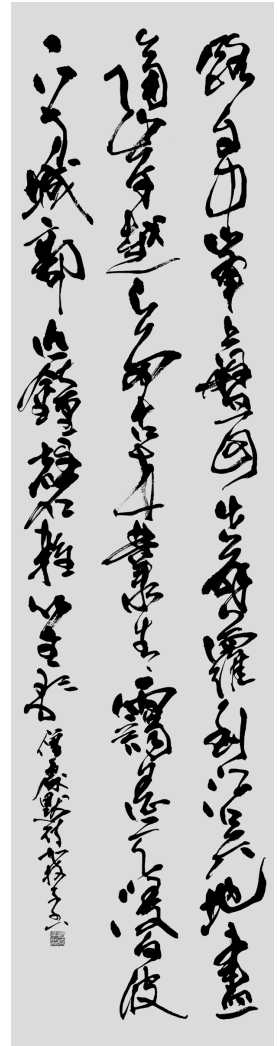 路自中峰上盤回出薜蘿到江吳地盡
隔岸越山多古木叢青靄遙天浸白波
下方城郭近鐘磬雜笙歌
僧處默詩